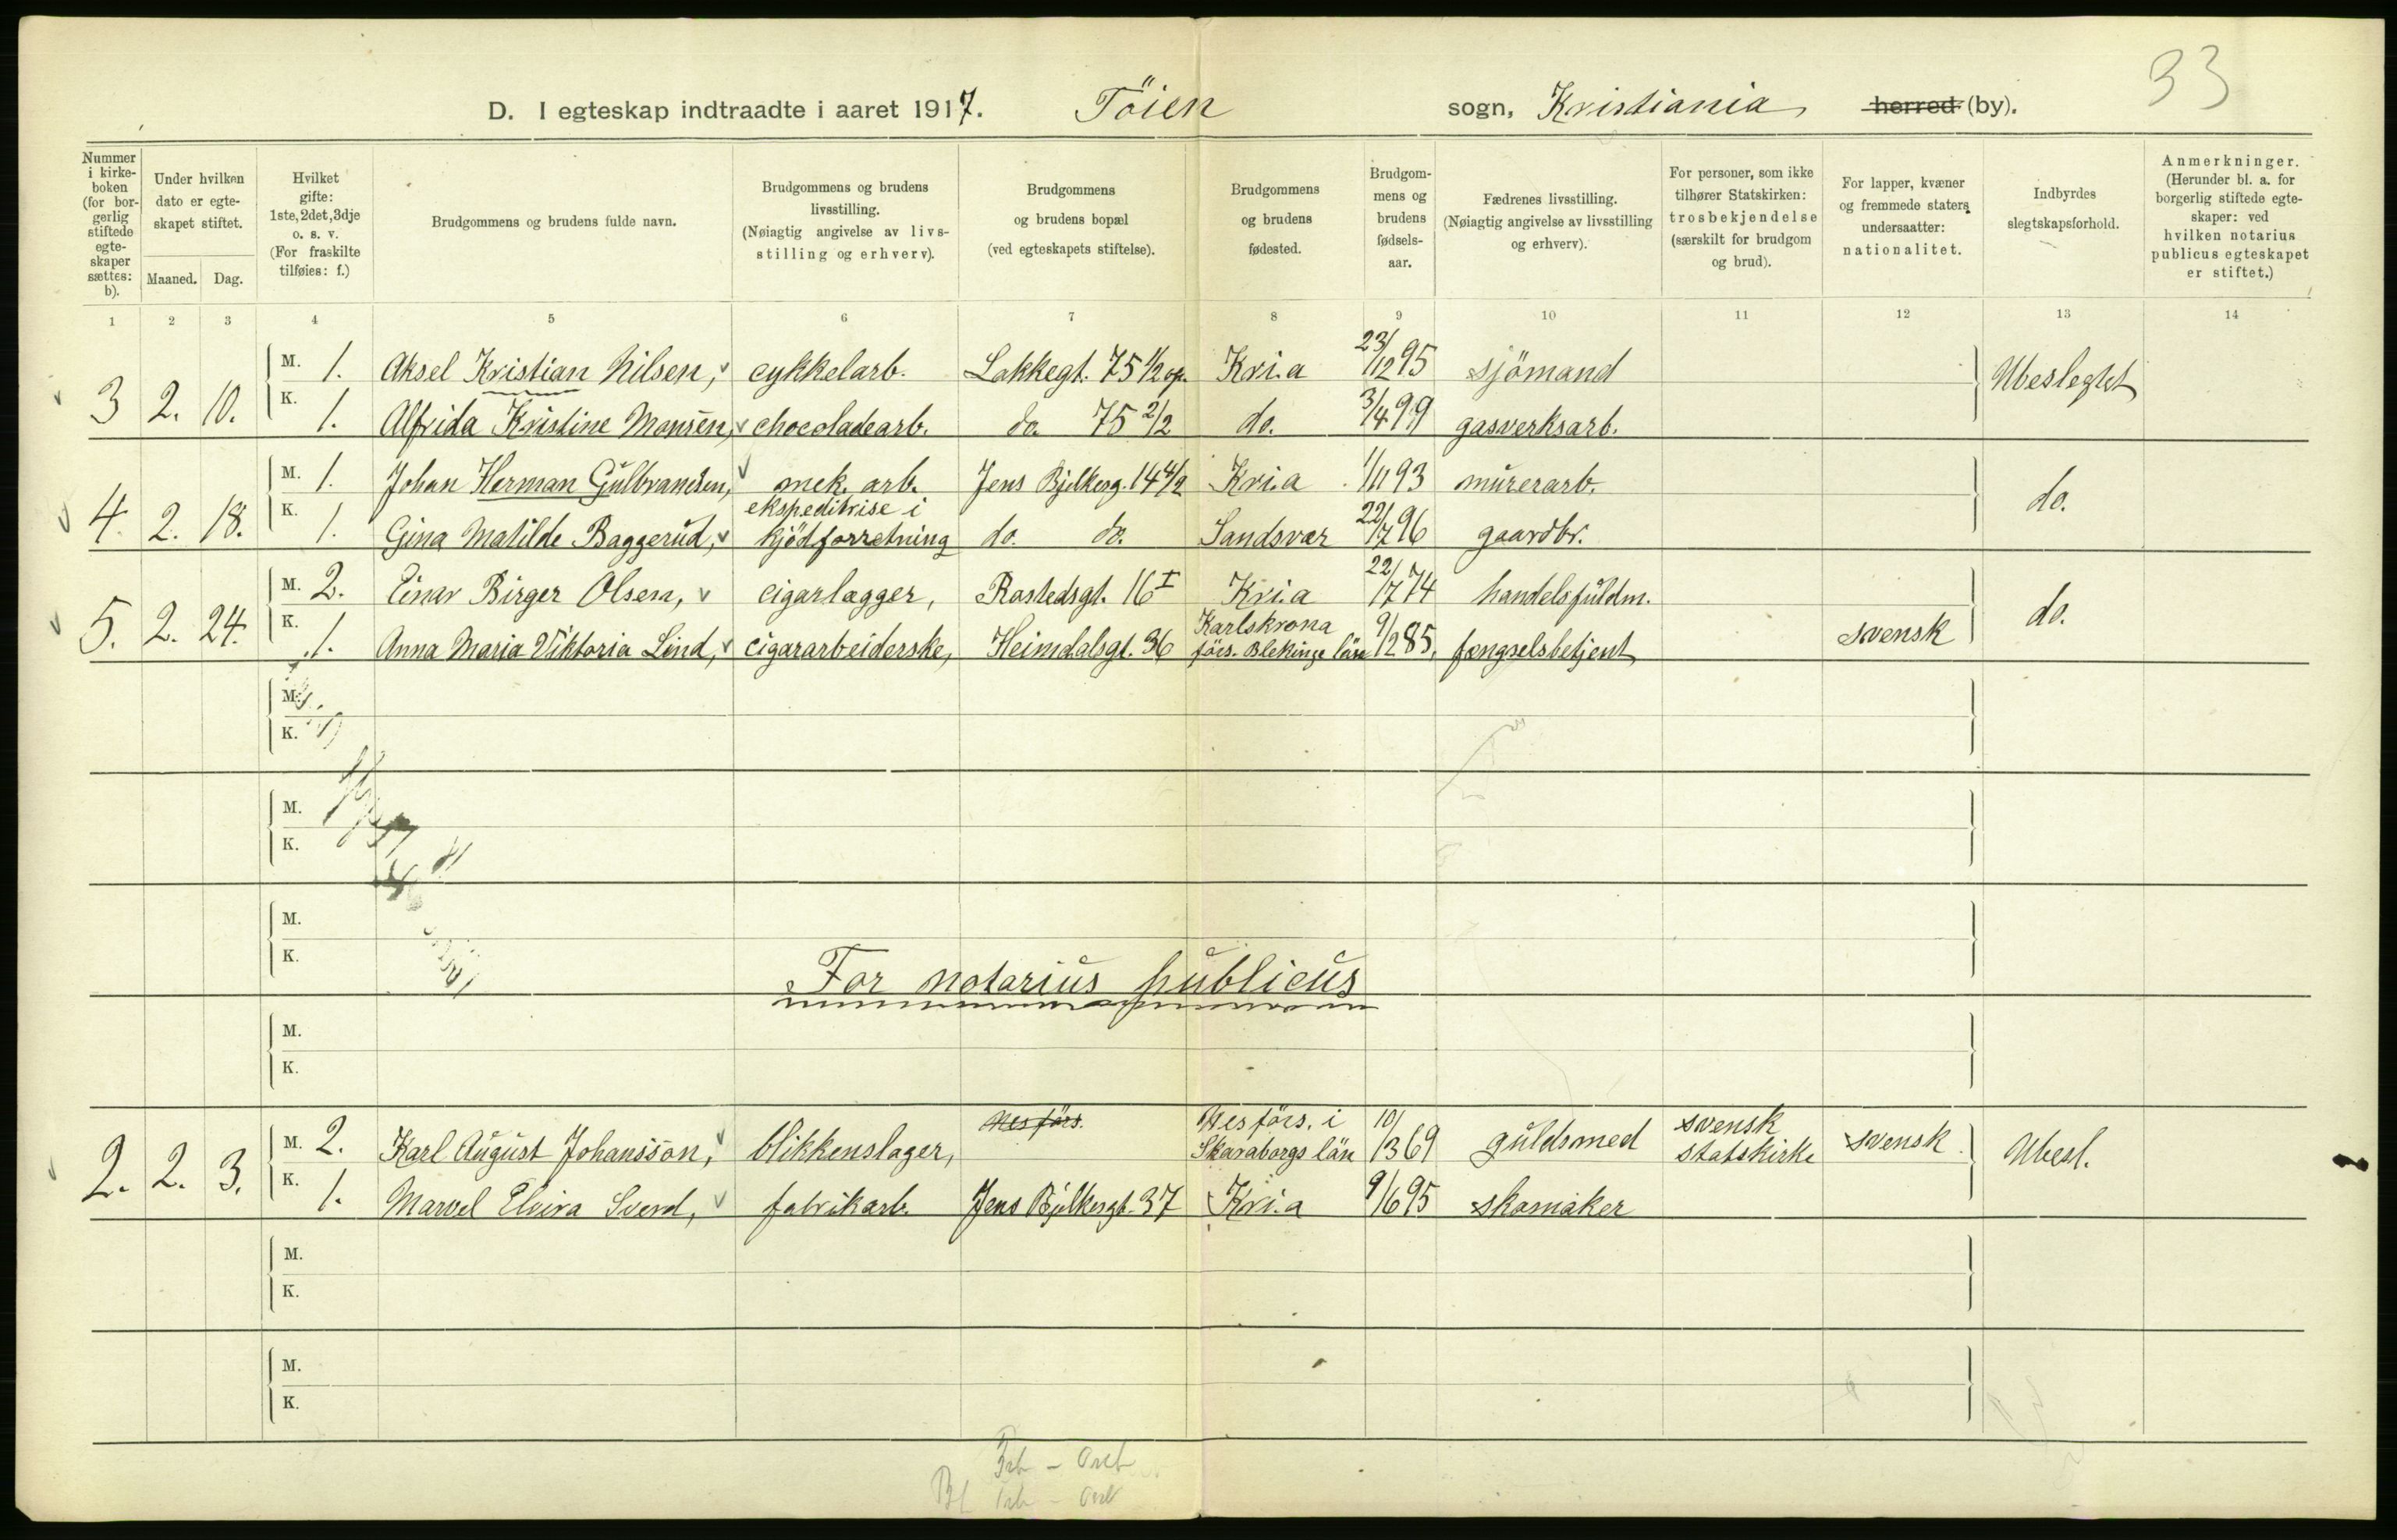 33
D. I egteskap indtraadte i aaret 1917. Töien sogn, Kristiania herred (by).
Nummer i kirkeboken (for borgerlig stiftede egteskaper sættes: b).
Under hvilken dato er egteskapet stiftet.
Maaned. Dag.
Hvilket gifte: 1ste, 2det, 3dje o. s. v. (For fraskilte tilføies: f.)
Brudgommens og brudens fulde navn.
Brudgommens og brudens livsstilling. (Nøiagtig angivelse av livsstilling og erhverv).
Brudgommens og brudens bopæl (ved egteskapets stiftelse).
Brudgommens og brudens fødested.
Brudgommens og brudens fødselsaar.
Fædrenes livsstilling. (Nøiagtig angivelse av livsstilling og erhverv).
For personer, som ikke tilhører Statskirken: trosbekjendelse (særskilt for brudgom og brud).
For lapper, kvæner og fremmede staters undersaatter: nationalitet.
Indbyrdes slegtskapsforhold.
Anmerkninger. (Herunder bl. a. for borgerlig stiftede egteskaper: ved hvilken notarius publicus egteskapet er stiftet.)
1 2 3 4 5 6 7 8 9 10 11 12 13 14
3 2. 10. M. 1. Aksel Kristian Nilsen, cykkelarb. Lakkegt. 75 1/2 op. Kri.a 23/12 95 sjömand Ubeslegtet
K. 1. Alfrida Kristine Monsen, chocoladearb. do. 75 2/2 do. 3/4 99 gasverksarb.
4. 2. 18. M. 1. Johan Herman Gulbrandsen, mek. arb. Jens Bjelkesg. 14 4/2 Kri.a 1/11 93 murerarb. do.
K. 1. Gina Matilde Baggerud, ekspeditrise i kjödforretning do. do. Sandsvær 22/7 96 gaardbr.
5. 2. 24. M. 2. Einar Birger Olsen, cigarlægger, Rostedsgt. 16 I Kri.a 22/7 74 handelsfuldm. do.
K. 1. Anna Maria Viktoria Lind, cigararbeiderske, Heimdalsgt. 36 Karlskrona förs. Blekinge län 9/12 85, fængselsbetjent svensk
M.
K.
M.
K.
M.
K.
For notarius publicus
M.
K.
2. 2. 3. M. 2. Karl August Johansson, blikkenslager, Nes förs. Nes förs. i Skaraborgs län 10/13 69 guldsmed svensk statskirke svensk Ubesl.
K. 1. Marvel Elvira Sverd, fabrikarb. Jens Bjelkesgt. 37 Kri.a 9/6 95 skomaker
M.
K.
M.
K.